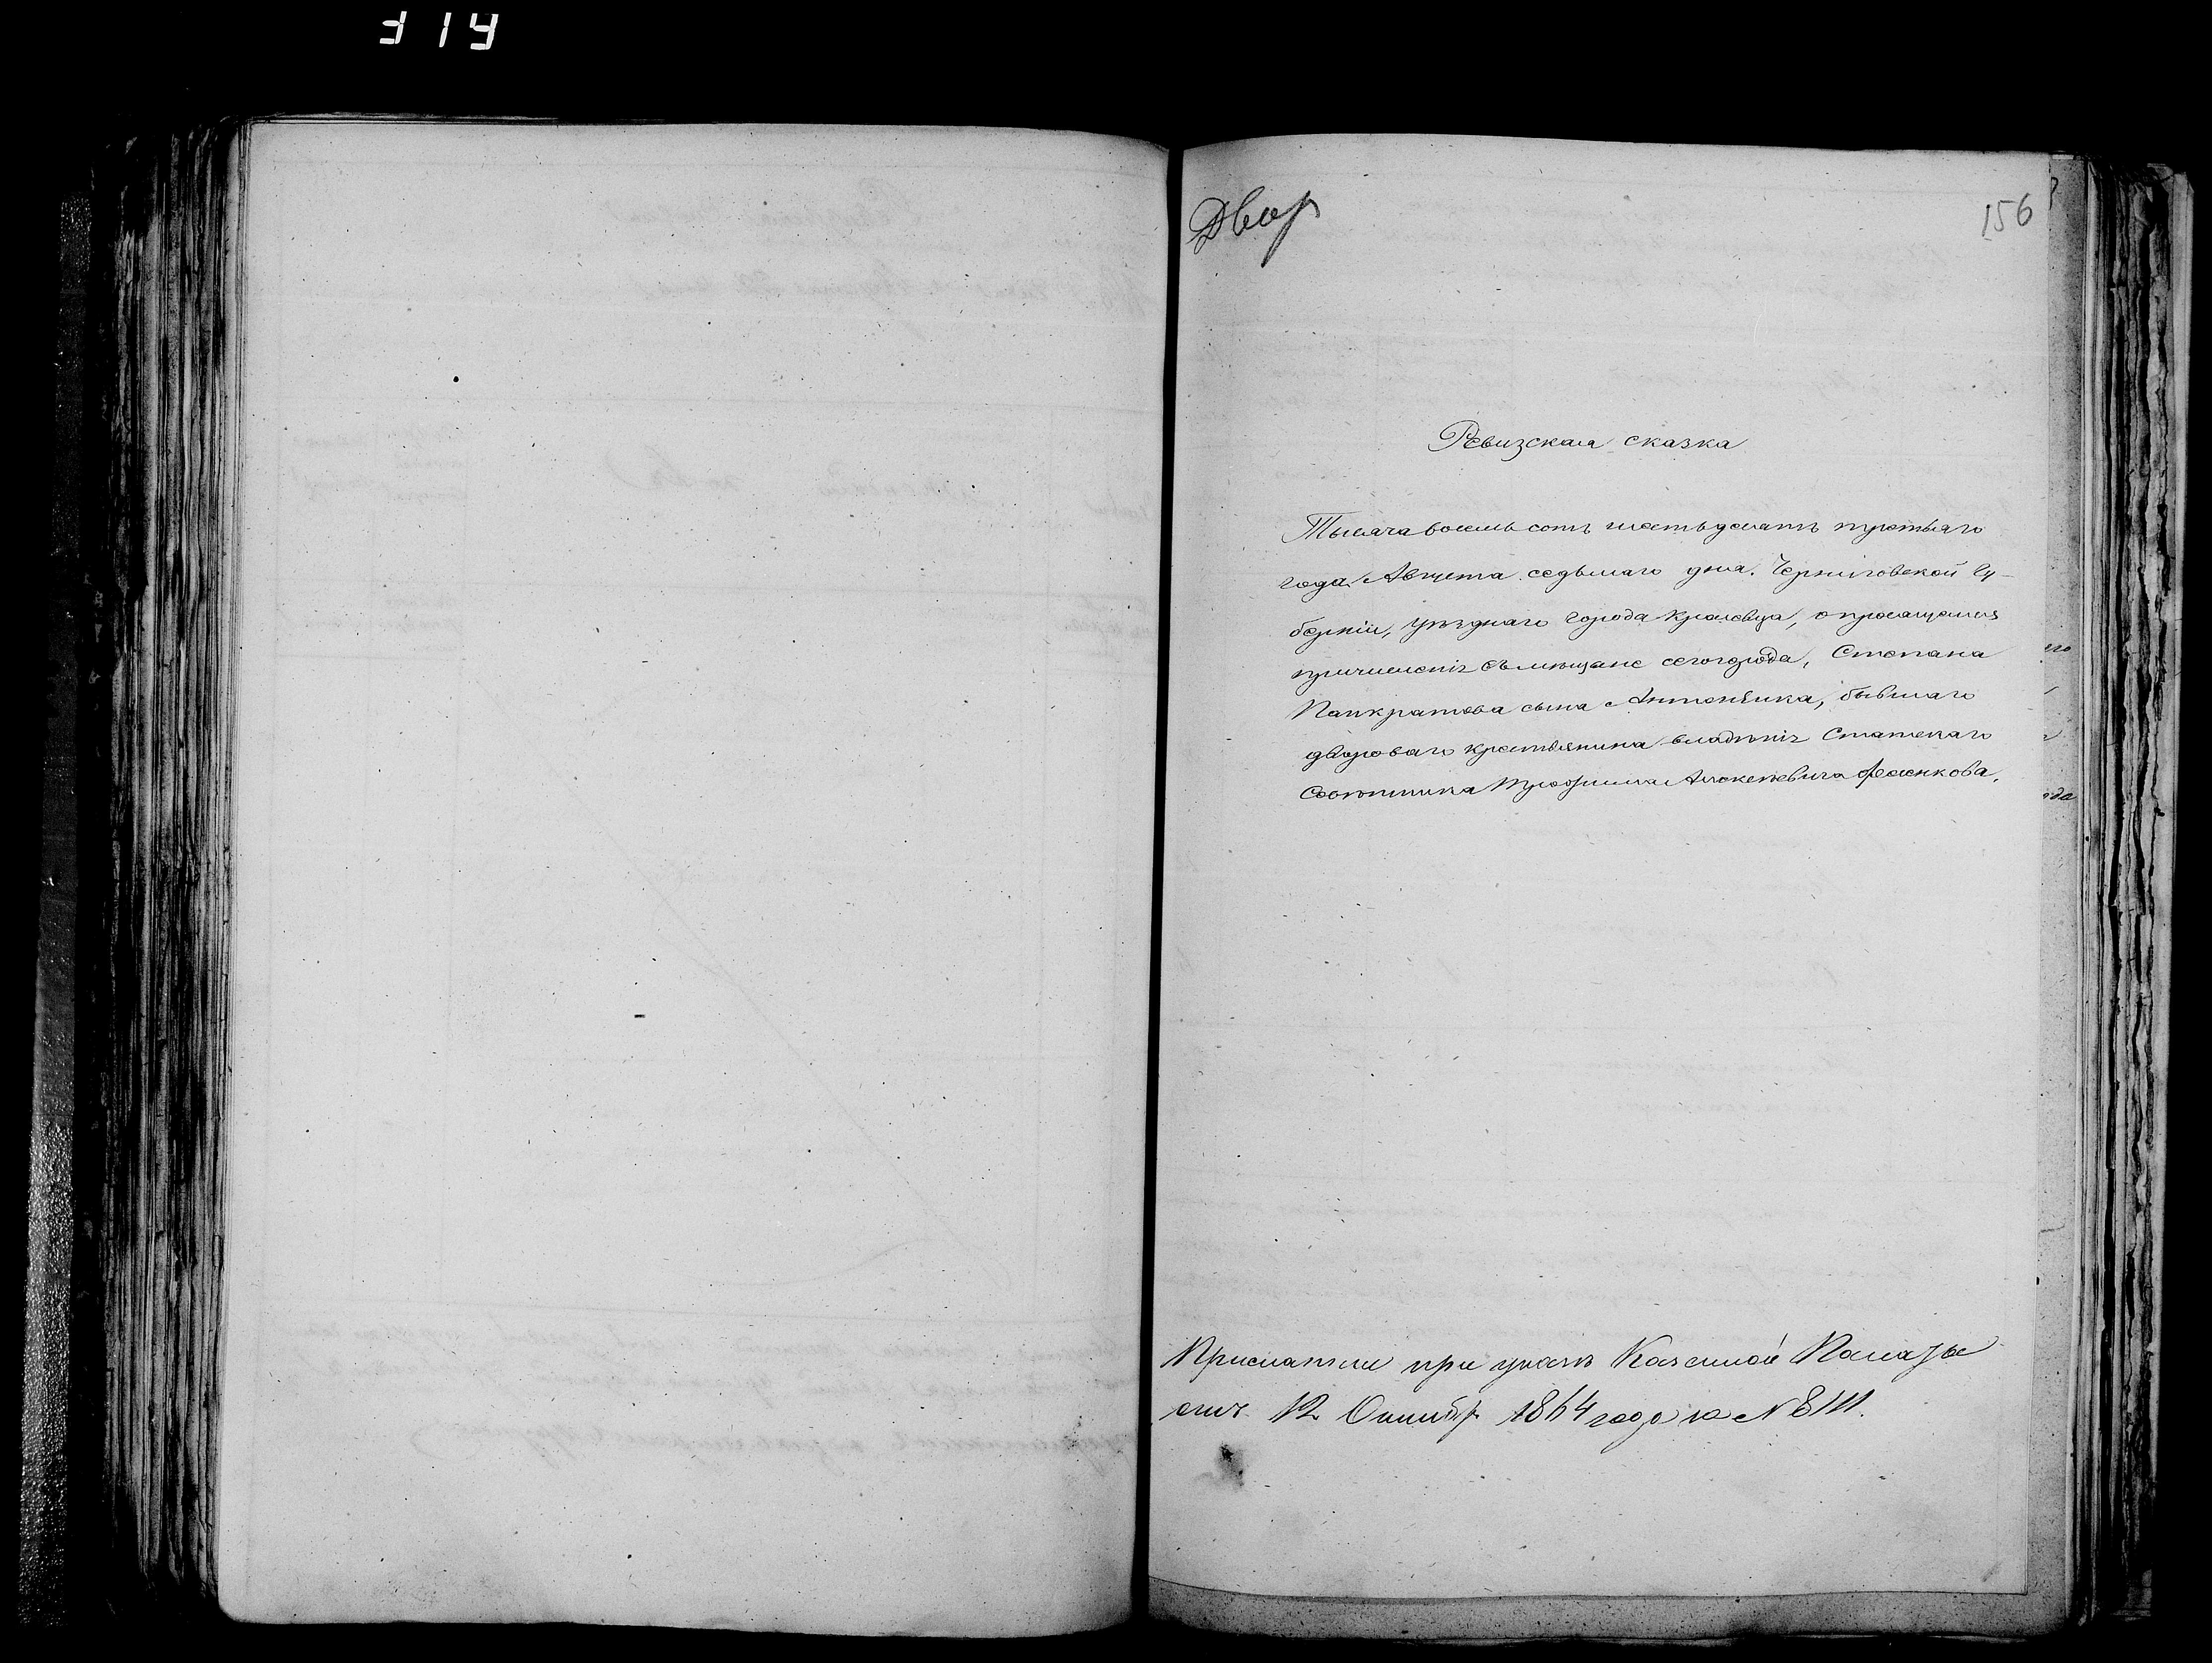 319
Двор
156
Ревизская сказка
Тысяча восемь сотъ шестьдесятъ третьяго
года Августа седьмаго дня. Черниговской Гу-
берніи, уѣзднаго города Кролевца, о просящемся
причисленія съ мещане сего города, Степана
Панкратова сына Антоненка, бывшаго
двороваго крестьянина владѣнія Статскаго
Совѣтника Трофима Алексѣевича Фесенкова.
Присланы при указѣ Казенной Палаты
отъ 12 Октябр 1864 года за №